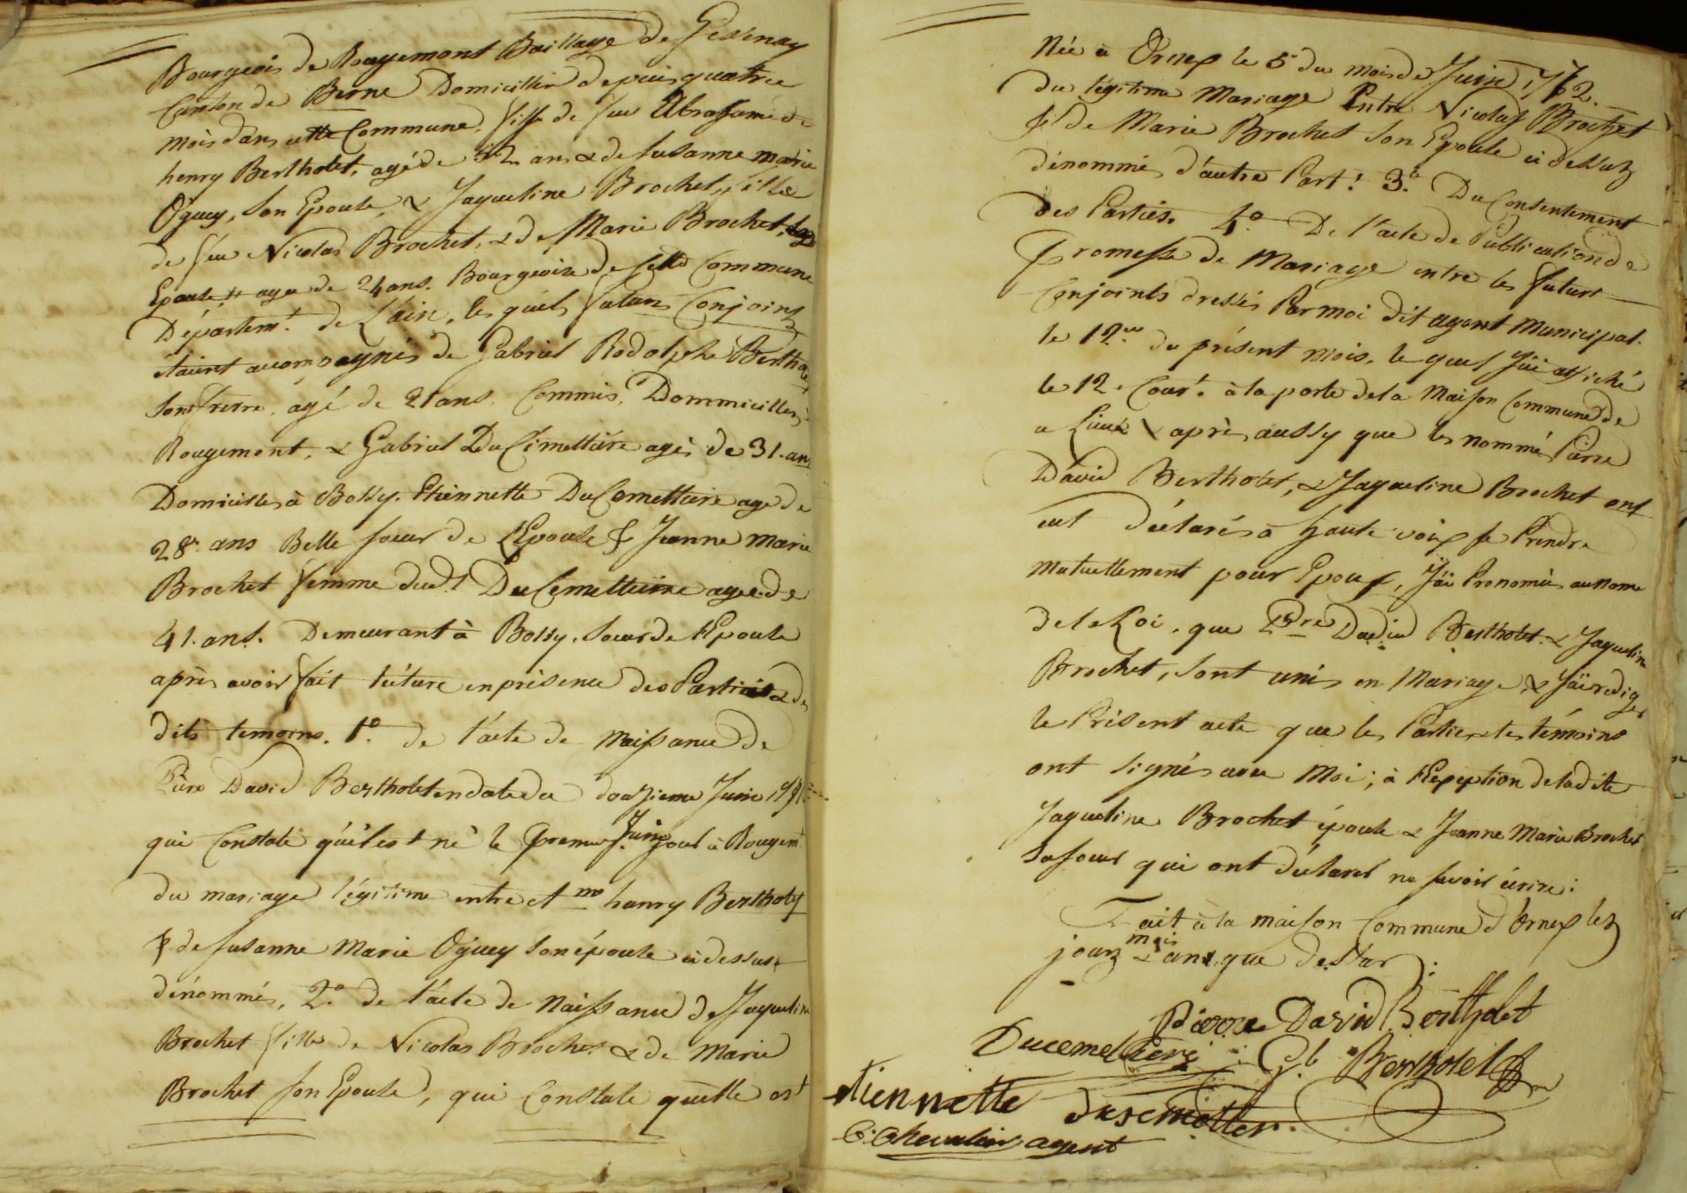 Bourgeois de Rougemont Baillage de Gessenay
Canton de Berne Domicillié depuis quatre
mois dans cette Commune, fils de feu Abraham
henry Bertholet, agé de 22 ans & de Susanne marie
Oguey, son Epouse, & Jaqueline Brochet, fille
de feu Nicolas Brochet, & de Marie Brochet,
Epouse agée de 24 ans. Bourgeoise de cette Commune
Départemt. de L'ain, les quels futurs Conjoints
étaient accompagnés de Gabriel Rodolphe Bertholet
son frerre, agé de 21 ans, Commis, Dommicillie à
Rougemont, & Gabriel DuCimettiére agés de 31. ans
Domicilles à Bossy. Etiennette DuCemettiere agé de
28. ans Belle soeur de L'Epouse & Jeanne Marie
Brochet femme dudt. DuCemettiere agée de
41. ans. Demeurant à Bossy. soeur de l'Epouse
après avoir fait lécture en présence des Parties & des
dits temoins. 1º. de l'acte de Naissance de
Pierre David Bertholet en date du douzieme Juin
qui Constate qu'il est né le Premier Juin jour à Rougemt
du mariage légitime entre henry Bertholet
& de Susanne Marie Oguey son épouse ci dessus
dénommés, 2º. de l'acte de Naissance de Jaqueline
Brochet fille de Nicolas Brochet & de Marie
Brochet son Epouse, qui Constate quelle est
Née à Ornex le 5e du mois de Juin
du légitime Mariage Entre Nicolas Brochet
& de Marie Brochet son Epouse ci dessus
dénommés d'autre Part: 3º. Du Consentement
des Parties. 4º. De l'acte de Publication de
Promesse de Mariage entre les futurs
Conjoints dressés Par moi dit agent Municipal.
le 12me du présent mois, le quel j'ai affiché
le 12. Court. à la porte de la Maison Commune de
a Lieux après aussy que les nommé Pierre
David Bertholet, & Jaqueline Brochet ont
eut déclarés à haute voix se Prendre
mutuellement pour Epoux, j'ai Prononcé au nom
de la Loi, que Pre. David Bertholet & Jaqueline
Brochet, sont unis en Mariage, & j'ai rediger
le Présent acte que les Parties & les témoins
ont signés avec Moi; à l'Exeption de la dite
Jaqueline Brochet épouse & Jeanne Marie Brochet
sa soeur qui ont déclarés ne savoir écrire:
Fait à la maison Commune d'Ornex les
jours mois & ans que dessus:
pierre David Bertholet
Ducemetiere Gb Bertholet
etiennette ducemettier.
C: Chevalier agent